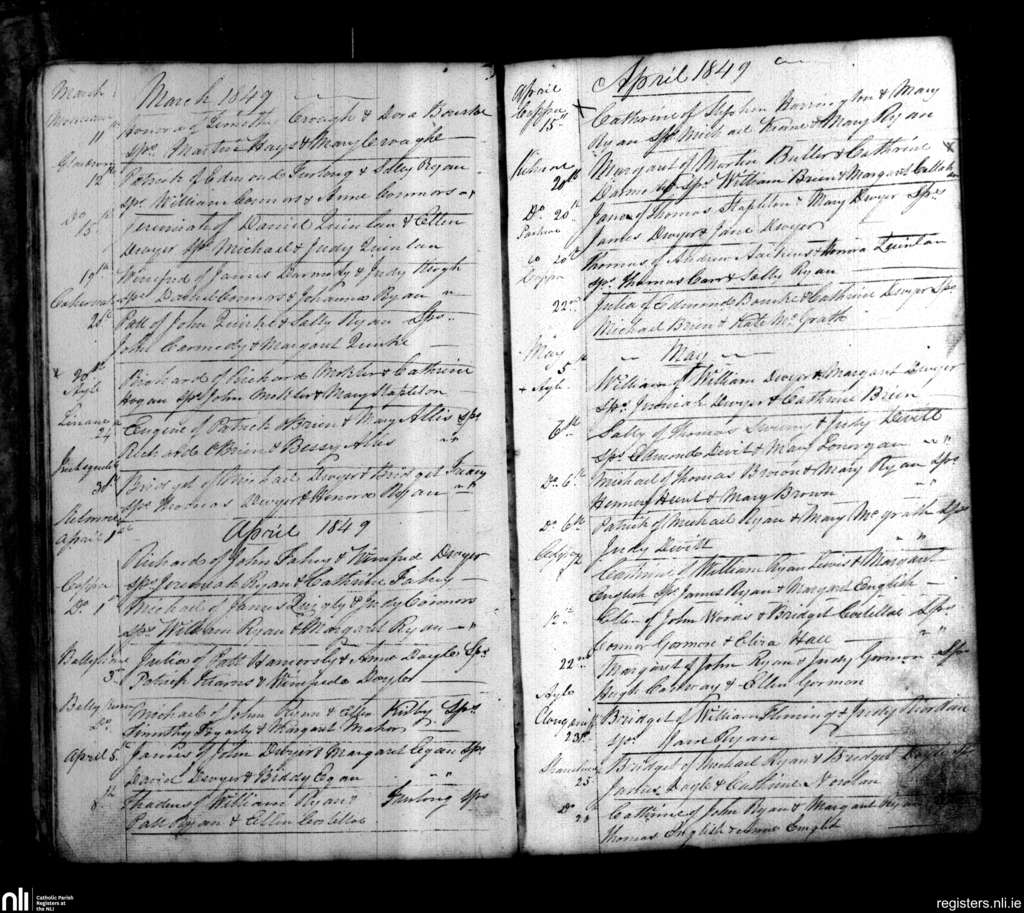 March
March 1849
11th
Honora of Timothy Croagh & Dora Bourke
Sprs Martin Hays & Mary Croagh
12th
Patrick of Edmond Furlong & Sally Ryan
Sprs William Connors & Anne Connors
Do 15th
Jeremiah of Daniel Quinlan & Ellen
Dwyer Sprs Michael & Judy Quinlan
19th
Winefred of James Darmody & Judy Keogh
Sprs Daniel Connors & Johanna Ryan
20th
Patt of John Quirke & Sally Ryan Sprs
John Carmody & Margaret Quirke
20th
Richard of Richard Mockler & Catherine
Hogan Sprs John Mockler & Mary Stapleton
24
Eugene of Patrick O'Brien & Mary Allis Sprs
Richard O'Brien & Bessy Allis
31st
Bridget of Michael Dwyer & Bridget
Sprs Thomas Dwyer & Honora Ryan
Kilmore
April 1849
April 1st
Richard of John Fahey & Winefred Dwyer
Sprs Jeremiah Ryan & Catherine Fahey
Coppa
Do 1st
Michael of James Quigly & Judy Connors
Sprs William Ryan & Margaret Ryan
3rd
Julia of Patt Hamersly & Anne Doyle Sprs
Patrick Kearns & Winefreda Doyle
Do
Michael of John Ryan & Ellen Kirby Sprs
Timothy Fogarty & Margaret Maher
April 5th
James of John Dwyer & Margaret Egan Sprs
David Dwyer & Biddy Egan
8th
Thadeus of William Ryan & Furlong Sprs
Patt Ryan & Ellen Costelloe
April
April 1849
Coppa
15th
Catherine of Stephen Harrington & Mary
Ryan Sprs Michael Keane & Mary Ryan
Kilmore
20th
Margaret of Martin Butler & Cathrine
Sprs William Breen & Margaret Callahan
Do 20th
Jane of Thomas Stapleton & Mary Dwyer Sprs
James Dwyer & Jane Dwyer
Do 20th
Thomas of Andrew & Honora Quinlan
Sprs Thomas Carr & Sally Ryan
22nd
Julia of Edmond Bourke & Cathrine Dwyer Sprs
Michael Brien & Kate McGrath
May
May
5th
William of William Dwyer & Margaret Dwyer
Sprs Jeremiah Dwyer & Cathrine Breen
6th
Sally of Thomas Sweeny & Judy Devitt
Sprs Edmond Devitt & Mary Lonergan
Do 6th
Michael of Thomas Brown & Mary Ryan Sprs
Henery Hunt & Mary Brown
Do 6th
Patrick of Michael Ryan & Mary McGrath Sprs
Judy Devitt
Catherine of William Ryan Lewis & Margaret
English Sprs James Ryan & Margaret English
12th
Ellen of John Woods & Bridget Costelloe Sprs
Connor Gorman & Eliza Hall
22nd
Margaret of John Ryan & Judy Gorman Sprs
Hugh Calloway & Ellen Gorman
23rd
Bridget of William Fleming & Judy Riordan
Sprs Jane Ryan
25
Bridget of Michael Ryan & Bridget Doyle Sprs
James Doyle & Cathrine Nowlan
Do 28
Cathrine of John Ryan & Margaret Ryan
Thomas English & Anne Enright
nli
Catholic Parish
Registers at
the NLI
registers.nli.ie